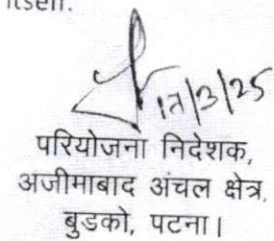 itself.
17/3/25
परियोजना निदेशक,
अजीमाबाद अंचल क्षेत्र,
बुडको, पटना।